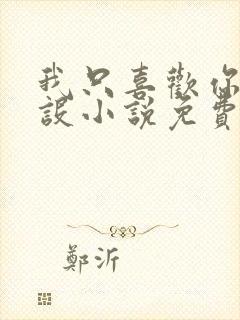 我只喜歡你
設小說免費
鄭沂